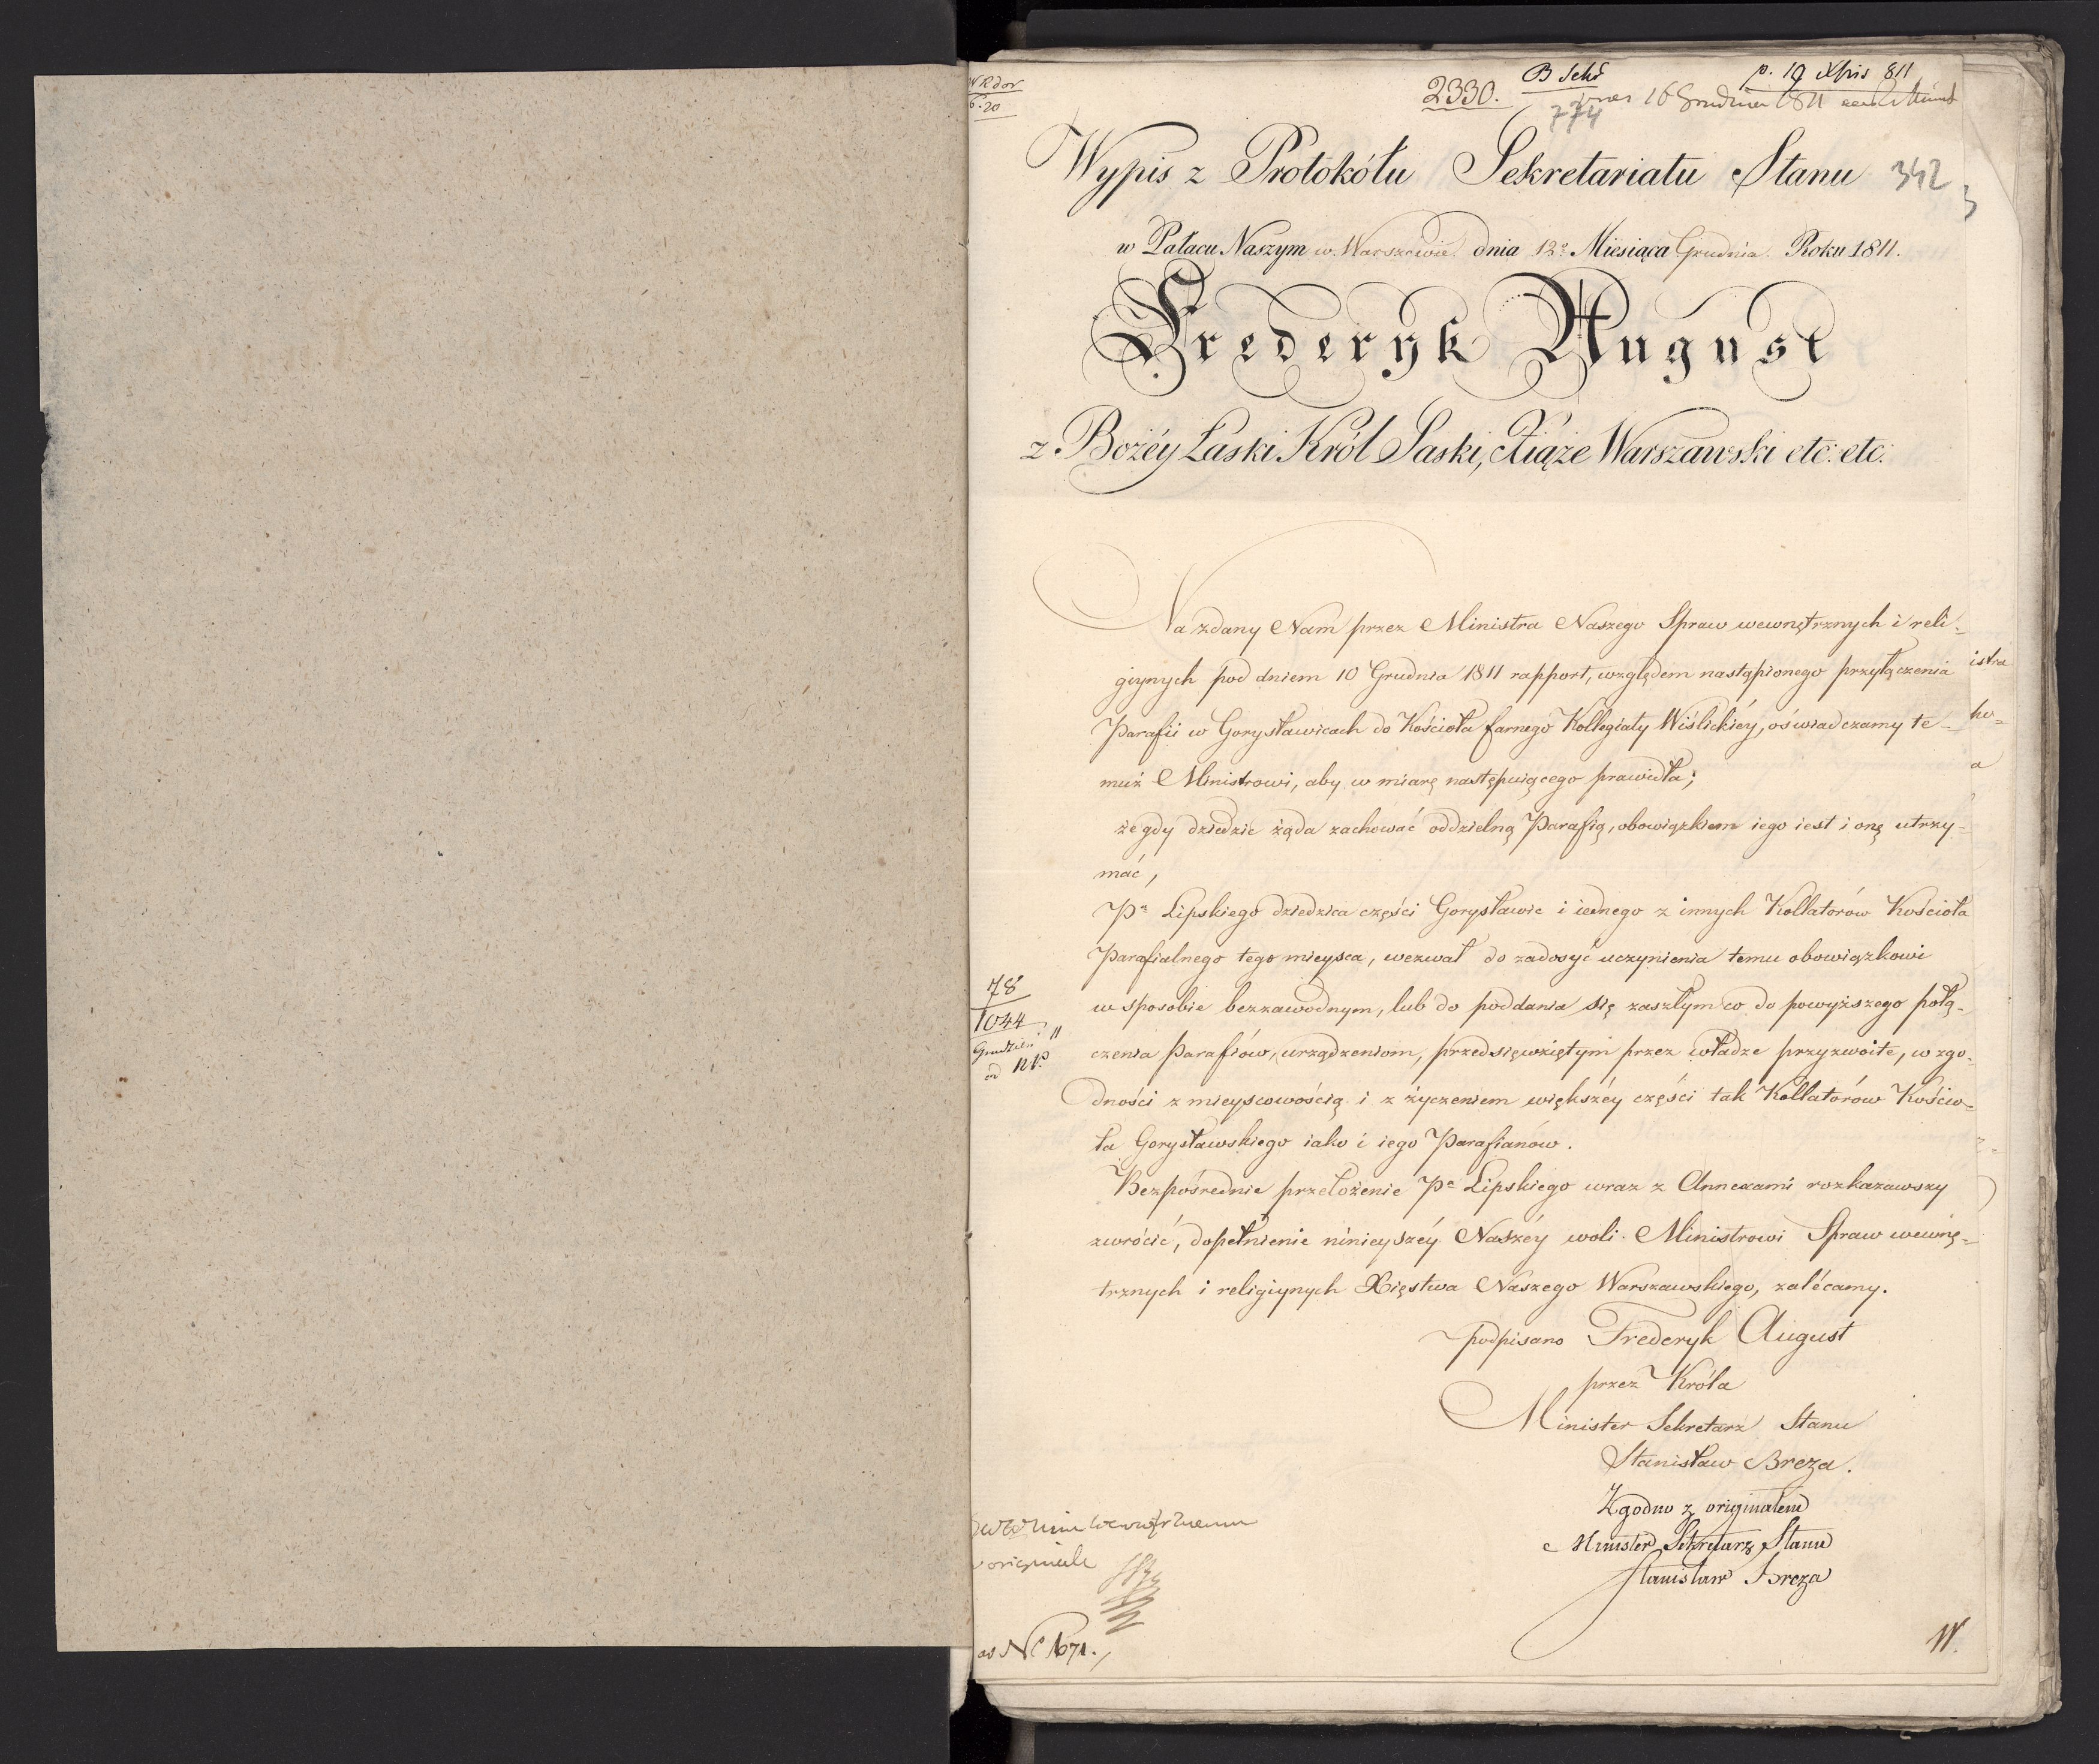 6.20
2330.
B Sekr
p. 19 Xbris 811
16 Grudnia 1811
774
Wypis z Protokółu Sekretariatu Stanu
342
w Pałacu Naszym w Warszawie dnia 12º Miesiąca Grudnia Roku 1811.
Frederyk August
z Bożéy Łaski Król Saski, Xiąże Warszawski etc: etc:
Na zdany Nam przez Ministra Naszego Spraw wewnętrznych i reli-
giynych pod dniem 10 Grudnia 1811 rapport, względem nastąpionego przyłączenia
istra
Parafii w Gorysławicach do Kościoła farnego Kollegiaty Wiślickiéy, oświadczamy te-
ko-
muż Ministrowi, aby w miarę następuiącego prawidła;
a
że gdy dziedzic żąda zachować oddzielną Parafią, obowiązkiem iego iest i onę utrzy-
mać,
Pª Lipskiego dziedzica części Gorysławic i iednego z innych Kollatorów Kościoła
Parafialnego tego mieysca, wezwał do zadosyć uczynienia temu obowiązkowi
w sposobie bezzawodnym, lub do poddania się zaszłym co do powyższego połą-
czenia Parafiów, urządzeniom, przedsięwziętym przez władze przyzwoite, w zgo-
dności z mieyscowością i z życzeniem większéy części tak Kollatorów Kościo-
ła Gorysławskiego iako i iego Parafianów.
78
1044
Grudzień 11
Bezpośrednie przełożenie Pª Lipskiego wraz z Annexami rozkazawszy
zwrócić, dopełnienie ninieyszéy Naszéy woli Ministrowi Spraw wewnę-
trznych i religiynych Xięstwa Naszego Warszawskiego, zalécamy.
podpisano Frederyk August
przez Króla
Minister Sekretarz Stanu
Stanisław Breza.
Zgodno z originałem
Minister Sekretarz Stanu
Stanisław Breza
originale
ad Nº 1671.